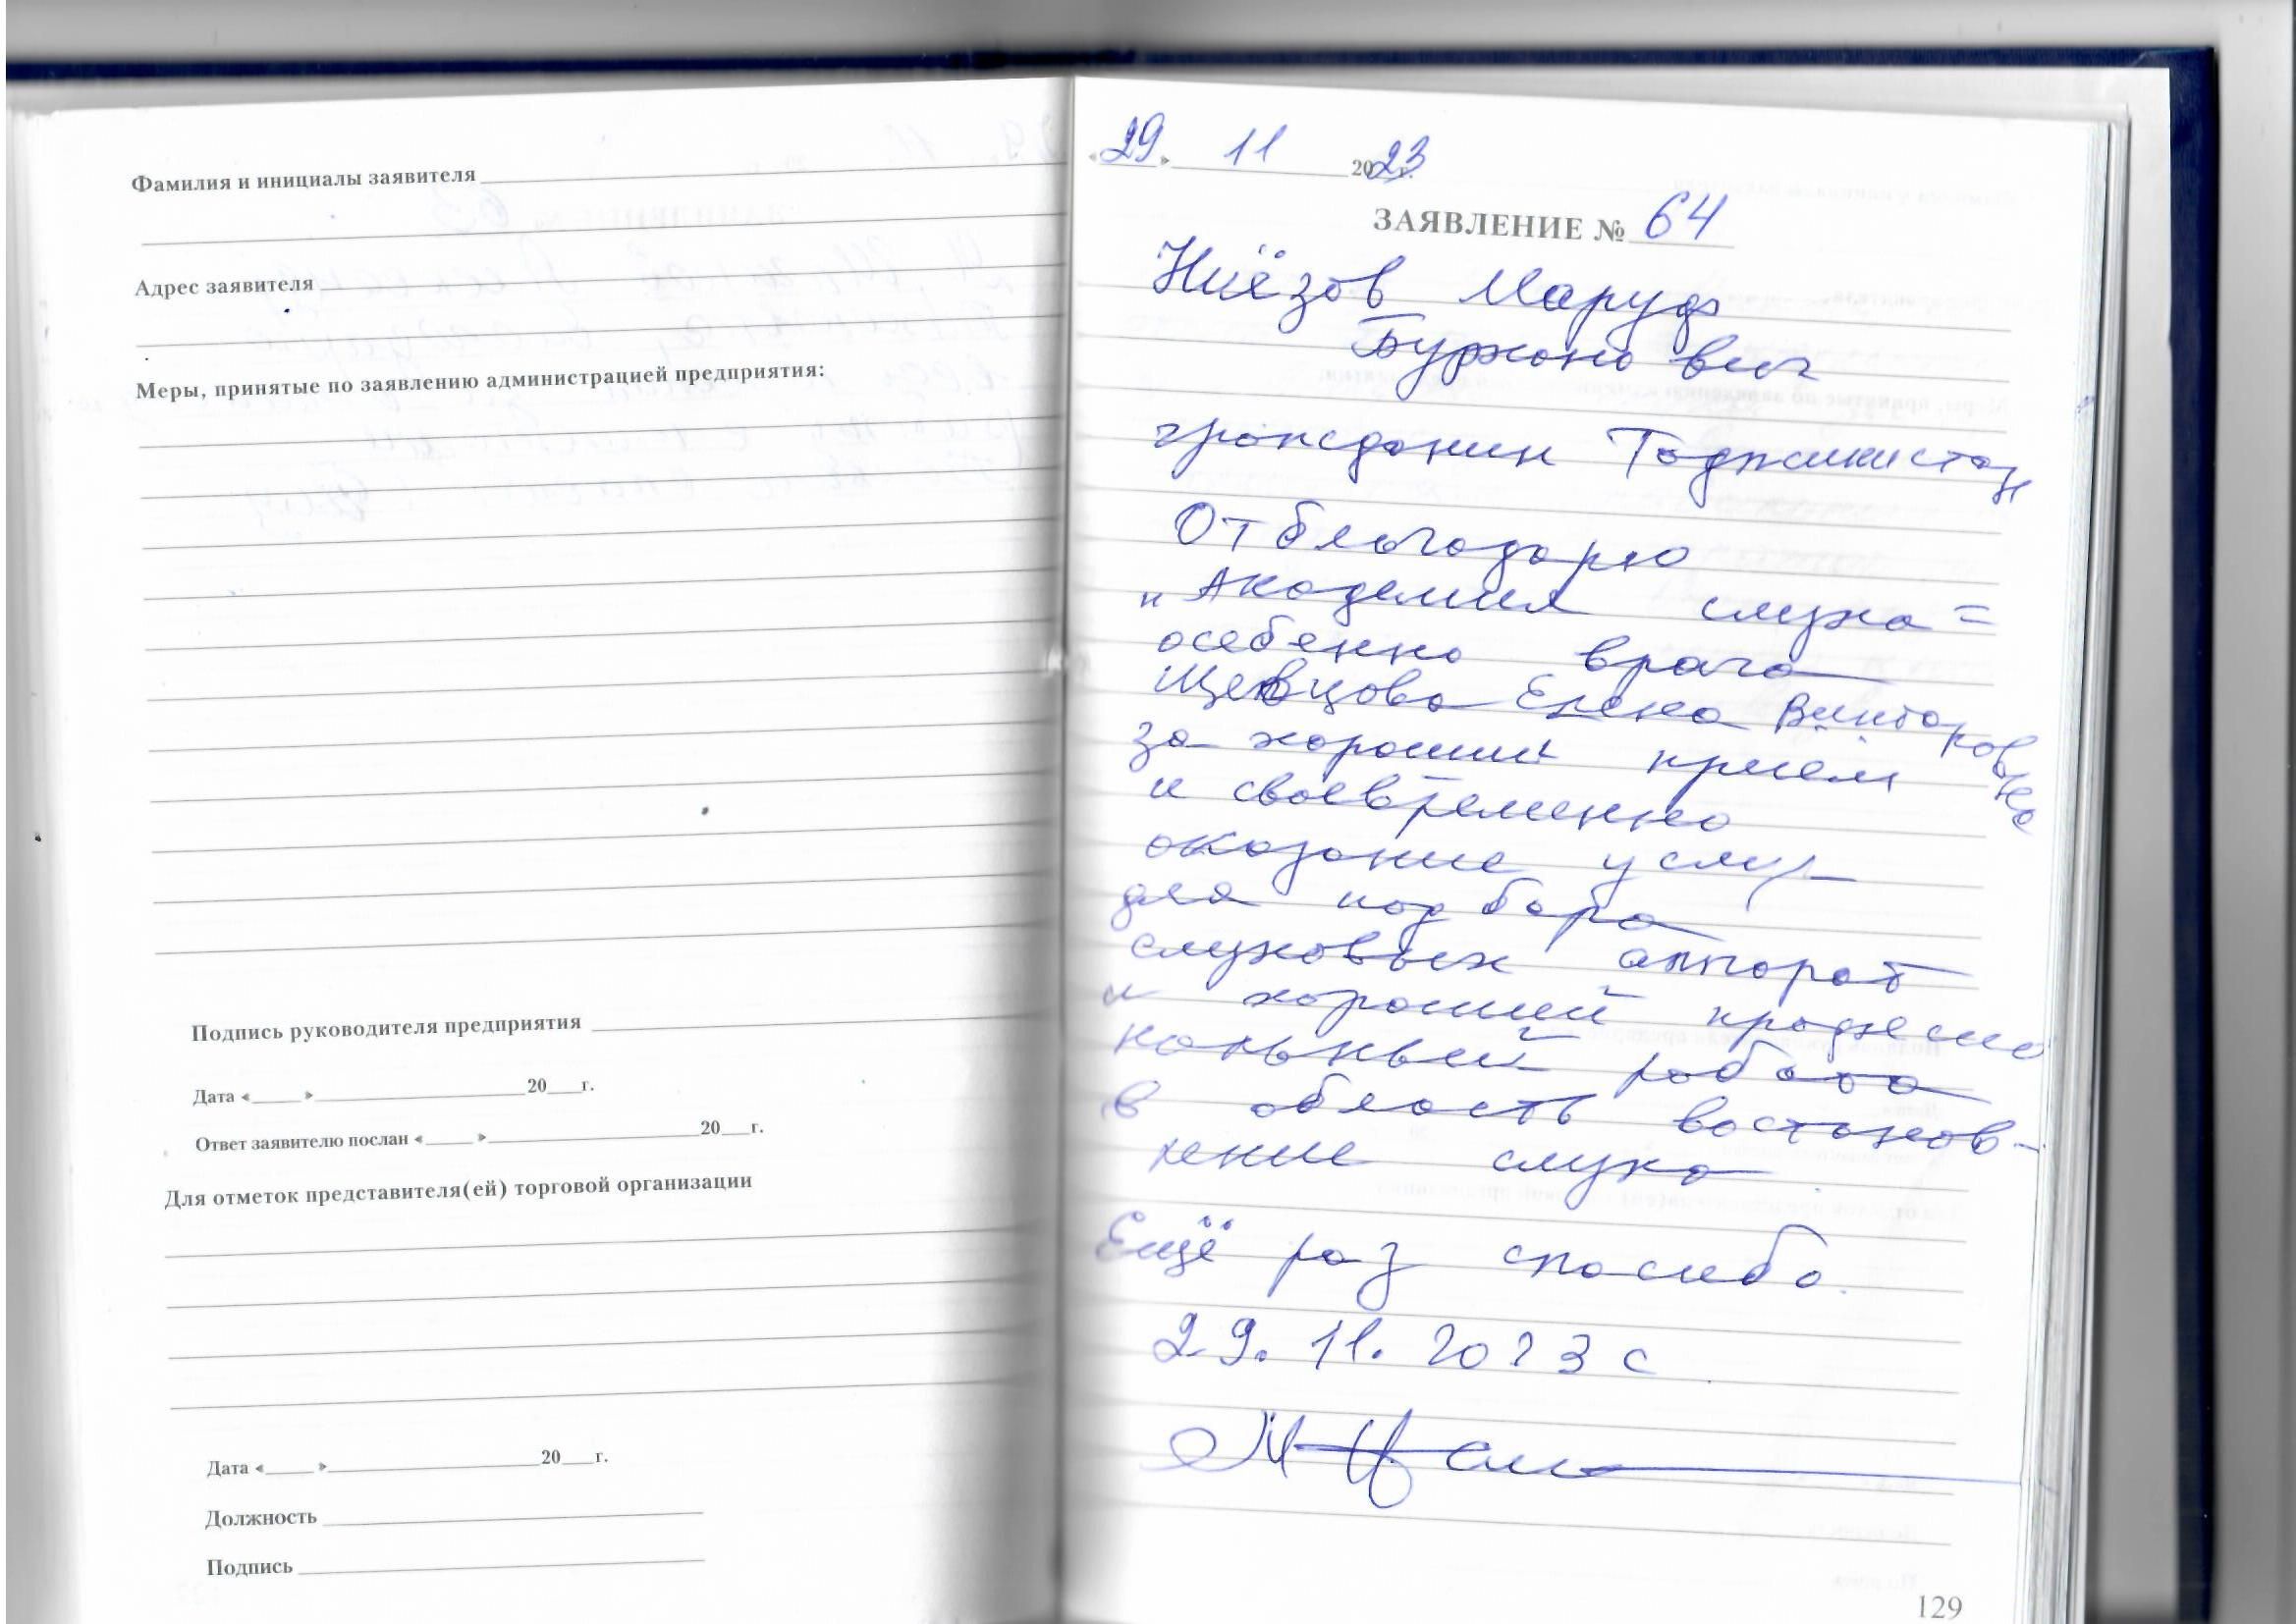 Фамилия и инициалы заявителя
Адрес заявителя
Меры, принятые по заявлению администрацией предприятия:
Подпись руководителя предприятия
Дата « » 20 г.
Ответ заявителю послан « » 20 г.
Для отметок представителя(ей) торговой организации
Дата « » 20 г.
Должность
Подпись
«29» 11 2023 г.
ЗАЯВЛЕНИЕ № 64
Ниёзов Маруф
Бурхонович
гражданин Таджикистан
Отблагодарю
"Академия слуха"
особенно врача
Шевцова Елена Викторовна
за хороший приём
и своевременно
оказание услуг
для подбора
слуховых аппарат
и хороший профессио
нальный работа
в область востанов-
ление слуха
Ещё раз спасибо.
29. 11. 2023 г
129